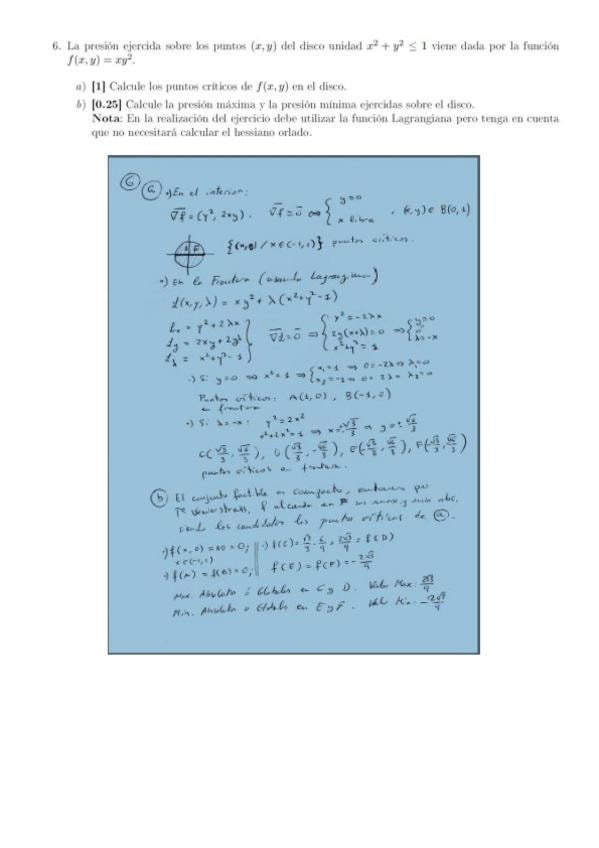 6. La presión ejercida sobre los puntos (x, y) del disco unidad x² + y² ≤ 1 viene dada por la función
f(x, y) = xy².
a) [1] Calcule los puntos críticos de f(x, y) en el disco.
b) [0.25] Calcule la presión máxima y la presión mínima ejercidas sobre el disco.
Nota: En la realización del ejercicio debe utilizar la función Lagrangiana pero tenga en cuenta
que no necesitará calcular el hessiano orlado.
⑥ ⓐ •) En el interior:
∇f = (y², 2xy). ∇f = 0 ⇔ { y=0 , x libre , (x, y) ∈ B(0, 1)
{(x,0) / x ∈ (-1,1)} puntos críticos.
•) En la Frontera (usando Lagrangiana)
L(x,y,λ) = xy² + λ(x²+y²-1)
Lx = y² + 2λx
Ly = 2xy + 2yλ
Lλ = x²+y²-1
∇L = 0 ⇒ { y² = -2λx
2y(x+λ)=0
x²+y²=1
⇒ { y=0
ó
λ=-x
•) Si y=0 ⇒ x²=1 ⇒ { x₁=1 ⇒ 0=-2λ ⇒ λ₁=0
x₂=-1 ⇒ 0=2λ ⇒ λ₂=0
Puntos críticos: A(1,0), B(-1,0)
en frontera
•) Si λ=-x: y²=2x²
x²+2x²=1 ⇒ x=±√3/3 ⇒ y=±√6/3
C(√3/3, √6/3), D(√3/3, -√6/3), E(-√3/3, √6/3), F(-√3/3, -√6/3)
puntos críticos en frontera.
ⓑ El conjunto factible es compacto, entonces por
Tª Weierstrass, f alcanza en F su max y min abs,
siendo los candidatos los puntos críticos de ⓐ.
•) f(x,0) = x0 = 0;
x ∈ (-1,1)
•) f(A) = f(B) = 0;
•) f(C) = √3/3 · 6/9 = 2√3/9 = f(D)
f(E) = f(F) = -2√3/9
Max. Absolutos ó Globales en C y D. Valor Max: 2√3/9
Min. Absolutos o Globales en E y F. Valor Min: -2√3/9